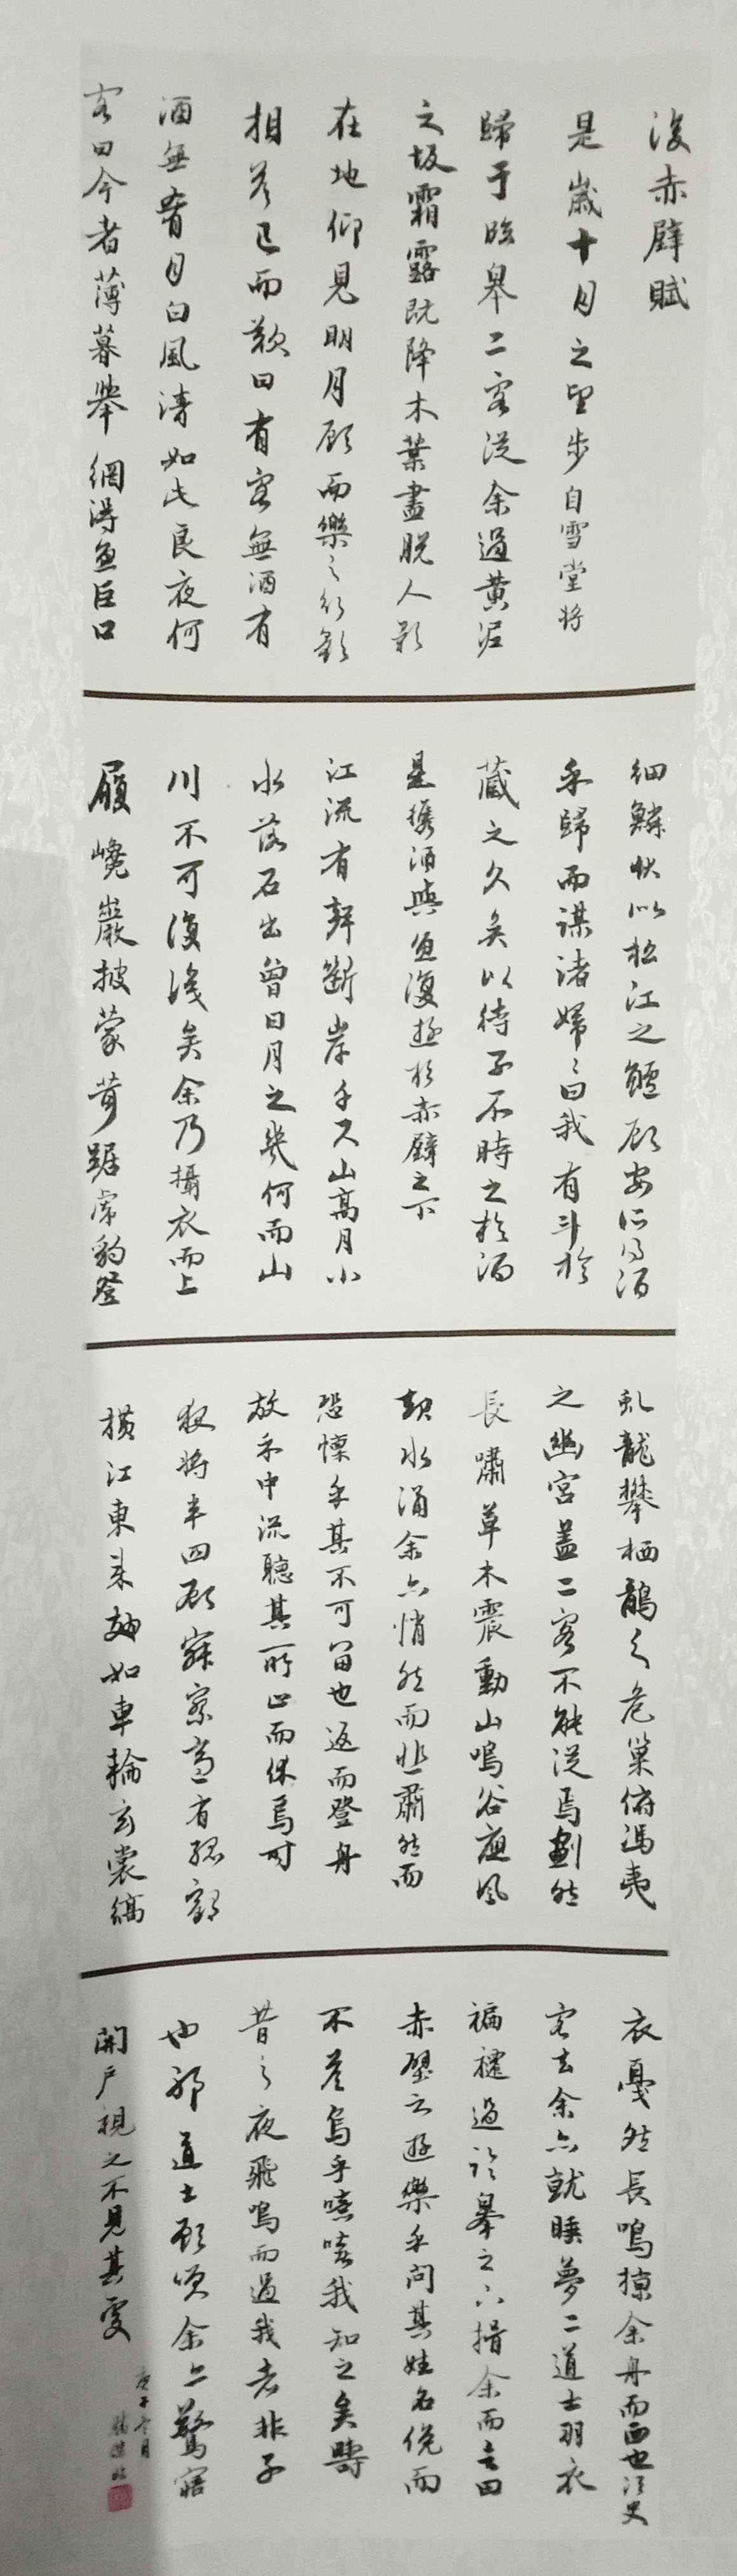 後赤壁賦
是歲十月之望步自雪堂將
歸于臨皋二客從余過黃泥
之坂霜露既降木葉盡脫人影
在地仰見明月顧而樂之行歌
相答已而歎曰有客無酒有
酒無肴月白風清如此良夜何
客曰今者薄暮舉網得魚巨口
細鱗狀似松江之鱸顧安所得酒
乎歸而謀諸婦々曰我有斗酒
藏之久矣以待子不時之於酒
是攜酒與魚復遊於赤壁之下
江流有聲斷岸千尺山高月小
水落石出曾日月之幾何而山
川不可復識矣余乃攝衣而上
履巉巖披蒙茸踞虎豹登
虬龍攀栖鶻之危巢俯馮夷
之幽宮蓋二客不能從焉劃然
長嘯草木震動山鳴谷應風
起水涌余亦悄然而悲肅然而
恐懍乎其不可留也返而登舟
放乎中流聽其所止而休焉時
夜將半四顧寂寥適有孤鶴
橫江東來翅如車輪玄裳縞
衣戛然長鳴掠余舟而西也須臾
客去余亦就睡夢二道士羽衣
蹁躚過臨皋之下揖余而言曰
赤壁之遊樂乎問其姓名俛而
不答烏乎噫嘻我知之矣疇
昔之夜飛鳴而過我者非子
也邪道士顧笑余亦驚寤
開戶視之不見其處
庚子冬月